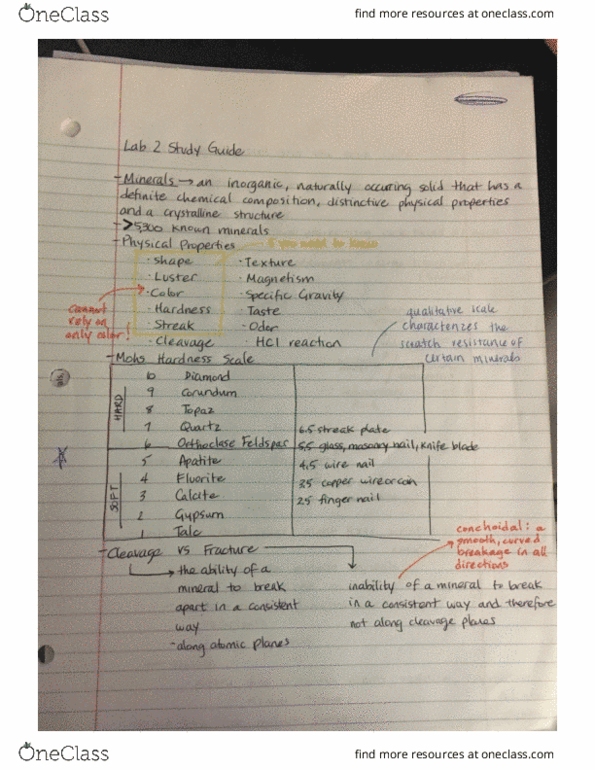 OneClass
find more resources at oneclass.com
Lab 2 Study Guide
-Minerals → an inorganic, naturally occuring solid that has a
definite chemical composition, distinctive physical properties
and a crystalline structure
->5,300 known minerals
-Physical Properties - if you need to know
·shape ·Texture
·Luster ·Magnetism
·Color ·Specific Gravity
·Hardness ·Taste
·Streak ·Odor
·Cleavage ·HCl reaction
cannot
rely on
only color!
qualitative scale
characterizes the
scratch resistance of
certain minerals
-Mohs Hardness Scale
HARD
10 Diamond
9 Corundum
8 Topaz
7 Quartz 6.5 streak plate
6 Orthoclase Feldspar 5.5 glass, masonry nail, knife blade
SOFT
5 Apatite 4.5 wire nail
4 Fluorite 3.5 copper wire or coin
3 Calcite 2.5 finger nail
2 Gypsum
1 Talc
conchoidal: a
smooth, curved
breakage in all
directions
-Cleavage vs Fracture
→ the ability of a
mineral to break
apart in a consistent
way
-along atomic planes
inability of a mineral to break
in a consistent way and therefore
not along cleavage planes
OneClass
find more resources at oneclass.com